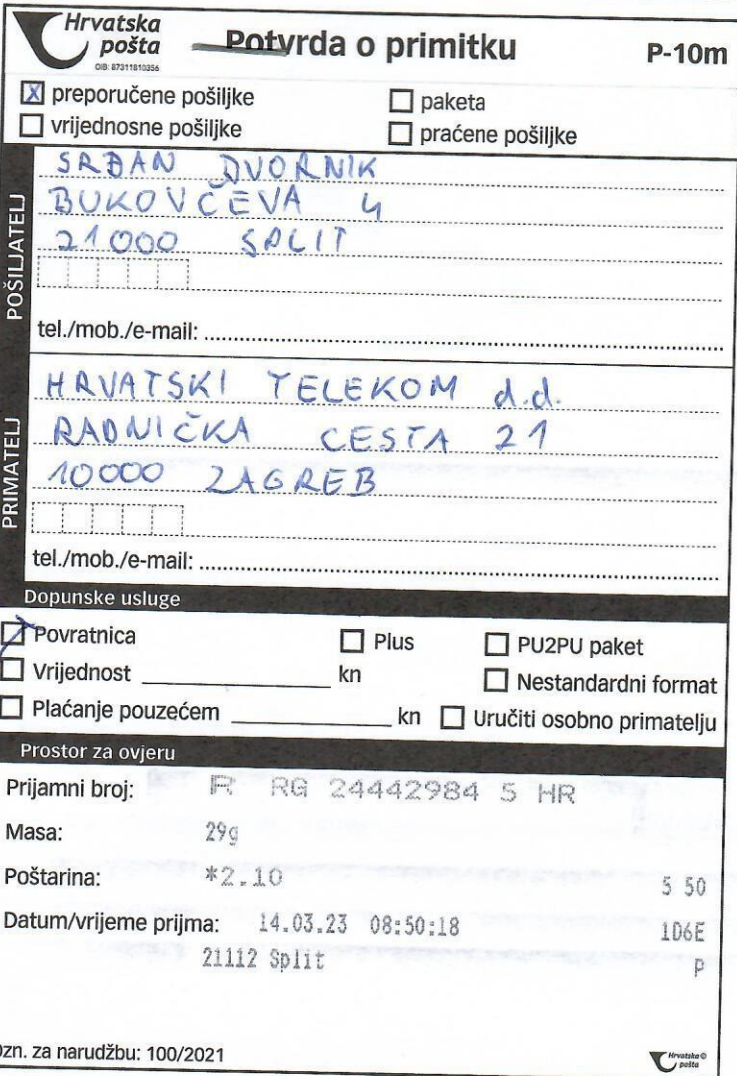 Hrvatska pošta
OIB: 87311810356
Potvrda o primitku P-10m
X preporučene pošiljke paketa
vrijednosne pošiljke praćene pošiljke
POŠILJATELJ
SRĐAN DVORNIK
BUKOVČEVA 4
21000 SPLIT
tel./mob./e-mail:
PRIMATELJ
HRVATSKI TELEKOM d.d.
RADNIČKA CESTA 21
10000 ZAGREB
tel./mob./e-mail:
Dopunske usluge
Povratnica Plus PU2PU paket
Vrijednost kn Nestandardni format
Plaćanje pouzećem kn Uručiti osobno primatelju
Prostor za ovjeru
Prijamni broj: R RG 24442984 5 HR
Masa: 29g
Poštarina: *2.10 5 50
Datum/vrijeme prijma: 14.03.23 08:50:18 106E
21112 Split P
Ozn. za narudžbu: 100/2021
Hrvatska pošta